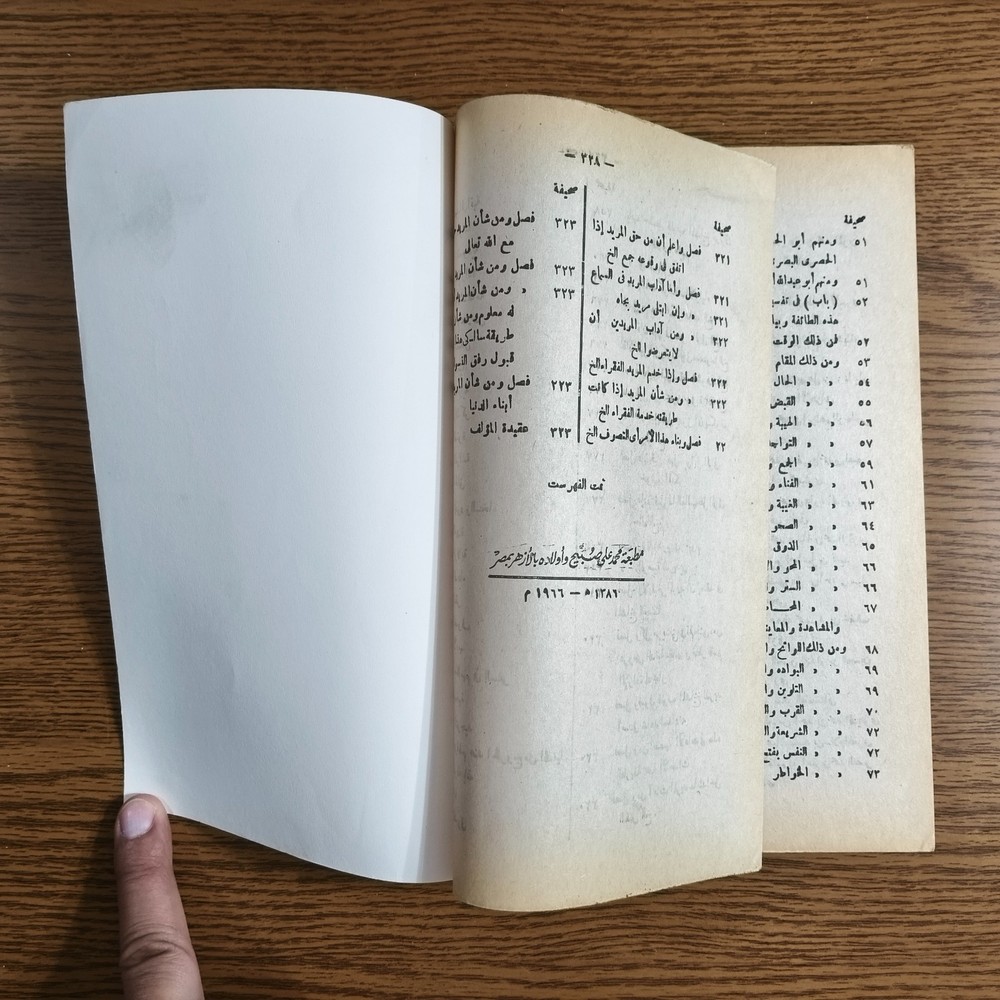 — ٣٢٨ —
صحيفة
٣٢١ فصل واعلم أن من حق المريد إذا
اتفق فى وقوعه جمع الخ
٣٢١ فصل وأما آداب المريد فى السماع
٣٢١ » وإن ابتلى مريد بجاه
٣٢٢ » ومن آداب المريدين أن
لا يتعرضوا الخ
٣٢٢ فصل وإذا خدم المريد الفقراء الخ
٣٢٢ » ومن شأن المريد إذا كانت
طريقته خدمة الفقراء الخ
٢٢ فصل وبناء هذا الامر أى التصوف الخ
صحيفة
٣٢٣ فصل ومن شأن المريد
مع الله تعالى
٣٢٣ فصل ومن شأن المريد
٣٢٣ » ومن شأن المريد
له معلوم ومن شأن
طريقة سالكى
قبول رفق
٢٢٣ فصل ومن شأن
أبناء الدنيا
٣٢٣ عقيدة المؤلف
تمت الفهرست
مطبعة محمد على صبيح وأولاده بالأزهر بمصر
١٣٨٦ ه — ١٩٦٦ م
صحيفة
٥١ ومنهم أبو
الحصرى البصرى
٥١ ومنهم أبو عبد الله
٥٢ ( باب ) فى
هذه الطائفة
٥٢ فمن ذلك الوقت
٥٣ ومن ذلك المقام
٥٤ » » الحال
٥٥ » » القبض
٥٦ » » الهيبة و
٥٧ » »
٥٩ » » الجمع و
٦١ » » الفناء و
٦٣ » » الغيبة و
٦٤ » » الصحو
٦٥ » » الذوق
٦٦ » » المحو وا
٦٦ » » الستر وا
٦٧ » »
والمشاهدة
٦٨ ومن ذلك اللوائح وا
٦٩ » » البواده وا
٦٩ » » التلوين وا
٧٠ » » القرب وا
٧٢ » » الشريعة وا
٧٢ » » النفس
٧٣ » » الخواطر